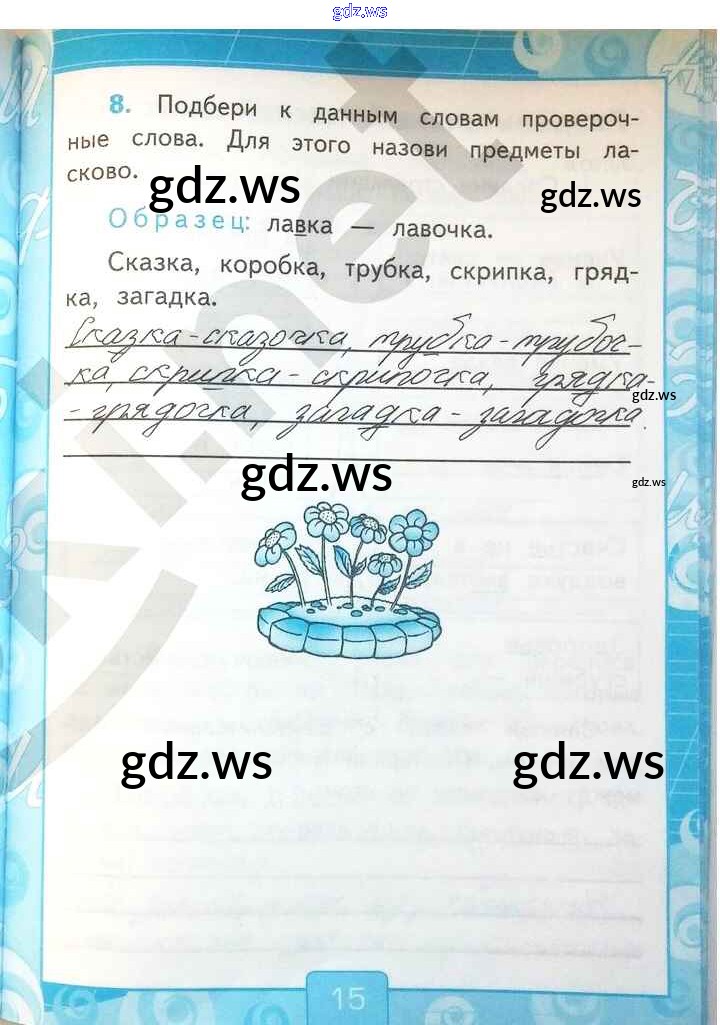 gdz.ws
8. Подбери к данным словам провероч-
ные слова. Для этого назови предметы ла-
сково.
gdz.ws
gdz.ws
Образец: лавка — лавочка.
Сказка, коробка, трубка, скрипка, гряд-
ка, загадка.
Сказка - сказочка, трубка - трубоч-
ка, скрипка - скрипочка, грядка-
- грядочка, загадка - загадочка.
gdz.ws
gdz.ws
gdz.ws
gdz.ws
gdz.ws
15